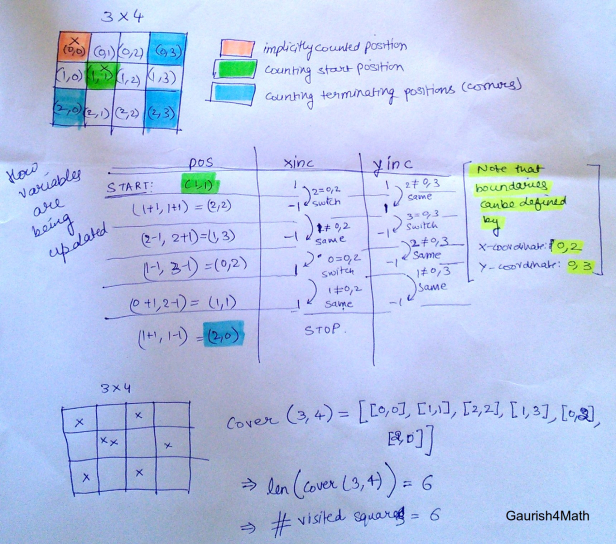 3 X 4
X
(0,0) (0,1) (0,2) (0,3)
(1,0) (1,1) (1,2) (1,3)
(2,0) (2,1) (2,2) (2,3)
implicitly counted position
counting start position
counting terminating positions (corners)
How
variables
are
being
updated
pos xinc yinc
START: (1,1) 1 1
2=0,2 switch
2≠0,3 same
(1+1, 1+1) = (2,2) -1 1
1≠0,2 same
3=0,3 switch
(2-1, 2+1) = (1,3) -1 -1
0=0,2 switch
2≠0,3 same
(1-1, 3-1) = (0,2) 1 -1
1≠0,2 same
1≠0,3 same
(0+1, 2-1) = (1,1) 1 -1
(1+1, 1-1) = (2,0) STOP.
Note that
boundaries
can be defined
by
X-coordinate: 0,2
Y-coordinate: 0,3
3 X 4
x x
xx x
x x
cover (3,4) = [[0,0], [1,1], [2,2], [1,3], [0,2],
[2,0]]
⇒ len(cover(3,4)) = 6
⇒ # visited squares = 6
Gaurish4Math